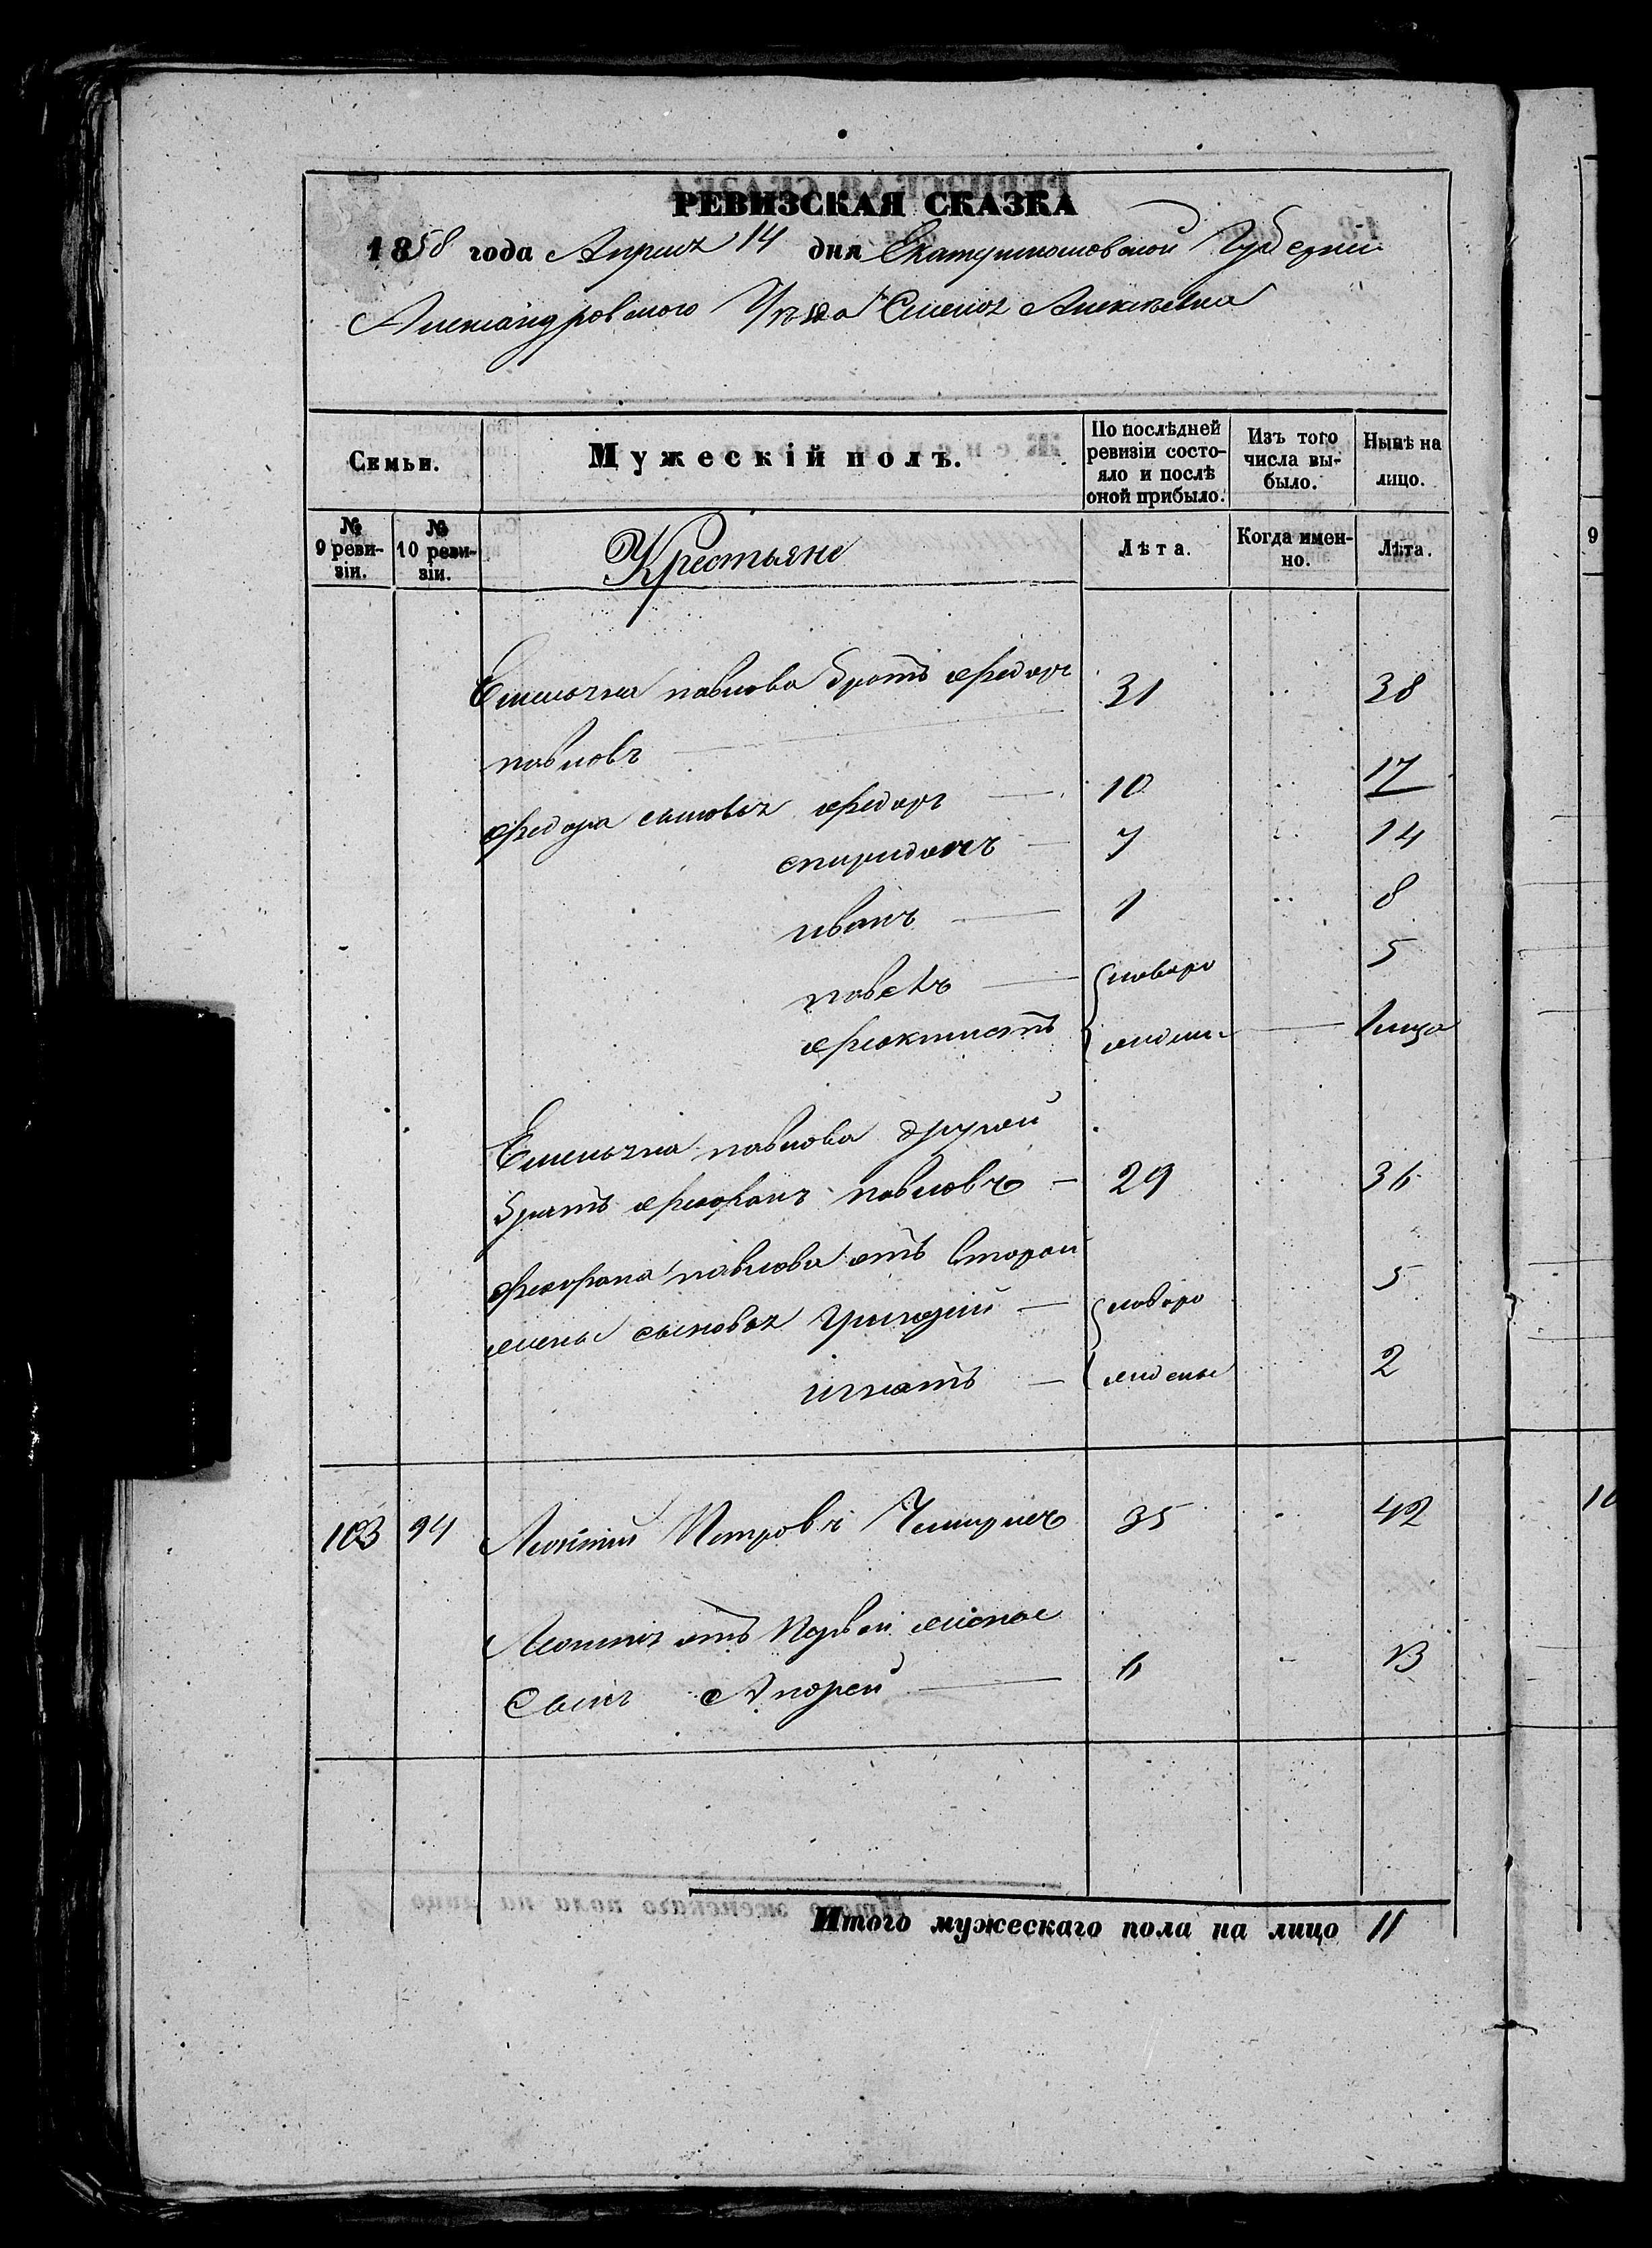 РЕВИЗСКАЯ СКАЗКА
1858 года Апреля 14 дня Екатеринославской Губернии
Александровского Уѣзда Алексѣевка
Семьи.
Мужескій полъ.
По послѣдней ревизіи состояло и послѣ оной прибыло.
Изъ того числа выбыло.
Нынѣ на лицо.
№ 9 ревизіи.
№ 10 ревизіи.
Крестьяне
Лѣта.
Когда именно.
Лѣта.
Емельяна павлова братъ федоръ 31 38
павловъ
федора сыновья федоръ 10 17
спиридонъ 7 14
иванъ 1 8
павелъ новоро 5
феоктистъ жденны 1 лица
Емельяна павлова другой
братъ павловъ 29 36
павлова отъ второй
жены сыновья Григорій новоро 5
игнатъ жденые 2
103 94 Леонтий Петровъ 35 42
Леонтия отъ Первой жены
Сынъ Андрей 6 13
Итого мужескаго пола на лицо 11
9
10